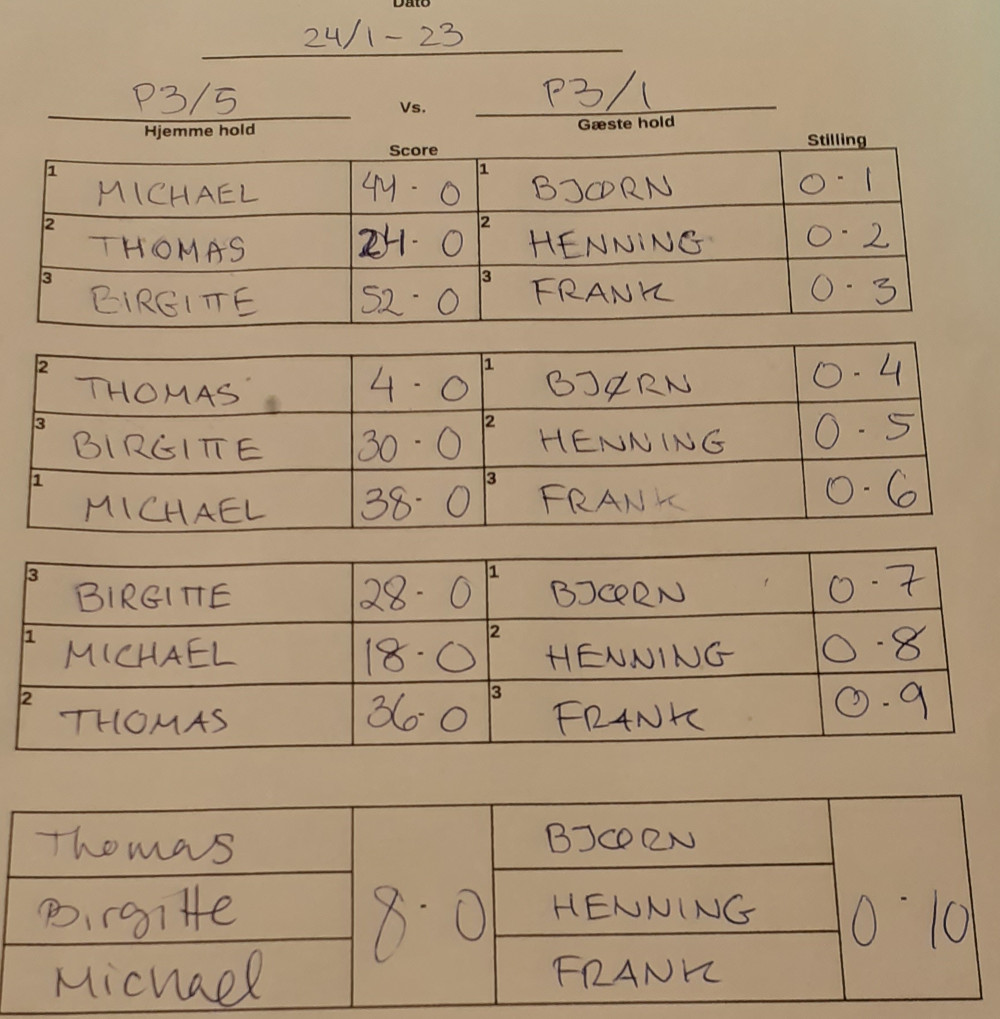 Dato
24/1 - 23
P3/5 Vs. P3/1
Hjemme hold Gæste hold
Score Stilling
1 MICHAEL 44 · 0 1 BJØRN 0 · 1
2 THOMAS 24 · 0 2 HENNING 0 · 2
3 BIRGITTE 52 · 0 3 FRANK 0 · 3
2 THOMAS 4 · 0 1 BJØRN 0 · 4
3 BIRGITTE 30 · 0 2 HENNING 0 · 5
1 MICHAEL 38 · 0 3 FRANK 0 · 6
3 BIRGITTE 28 · 0 1 BJØRN 0 · 7
1 MICHAEL 18 · 0 2 HENNING 0 · 8
2 THOMAS 36 · 0 3 FRANK 0 · 9
Thomas BJØRN
Birgitte 8 · 0 HENNING 0 · 10
Michael FRANK